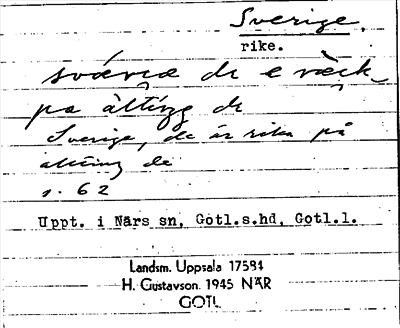 Sverige.
rike.
sværiæ de e ræik
pa ålting de
Sverige, de är rika på
allting de
s. 62
Uppt. i Närs sn, Gotl.s.hd, Gotl.l.
Landsm. Uppsala 17584
H. Gustavson. 1945 NÄR
GOTL